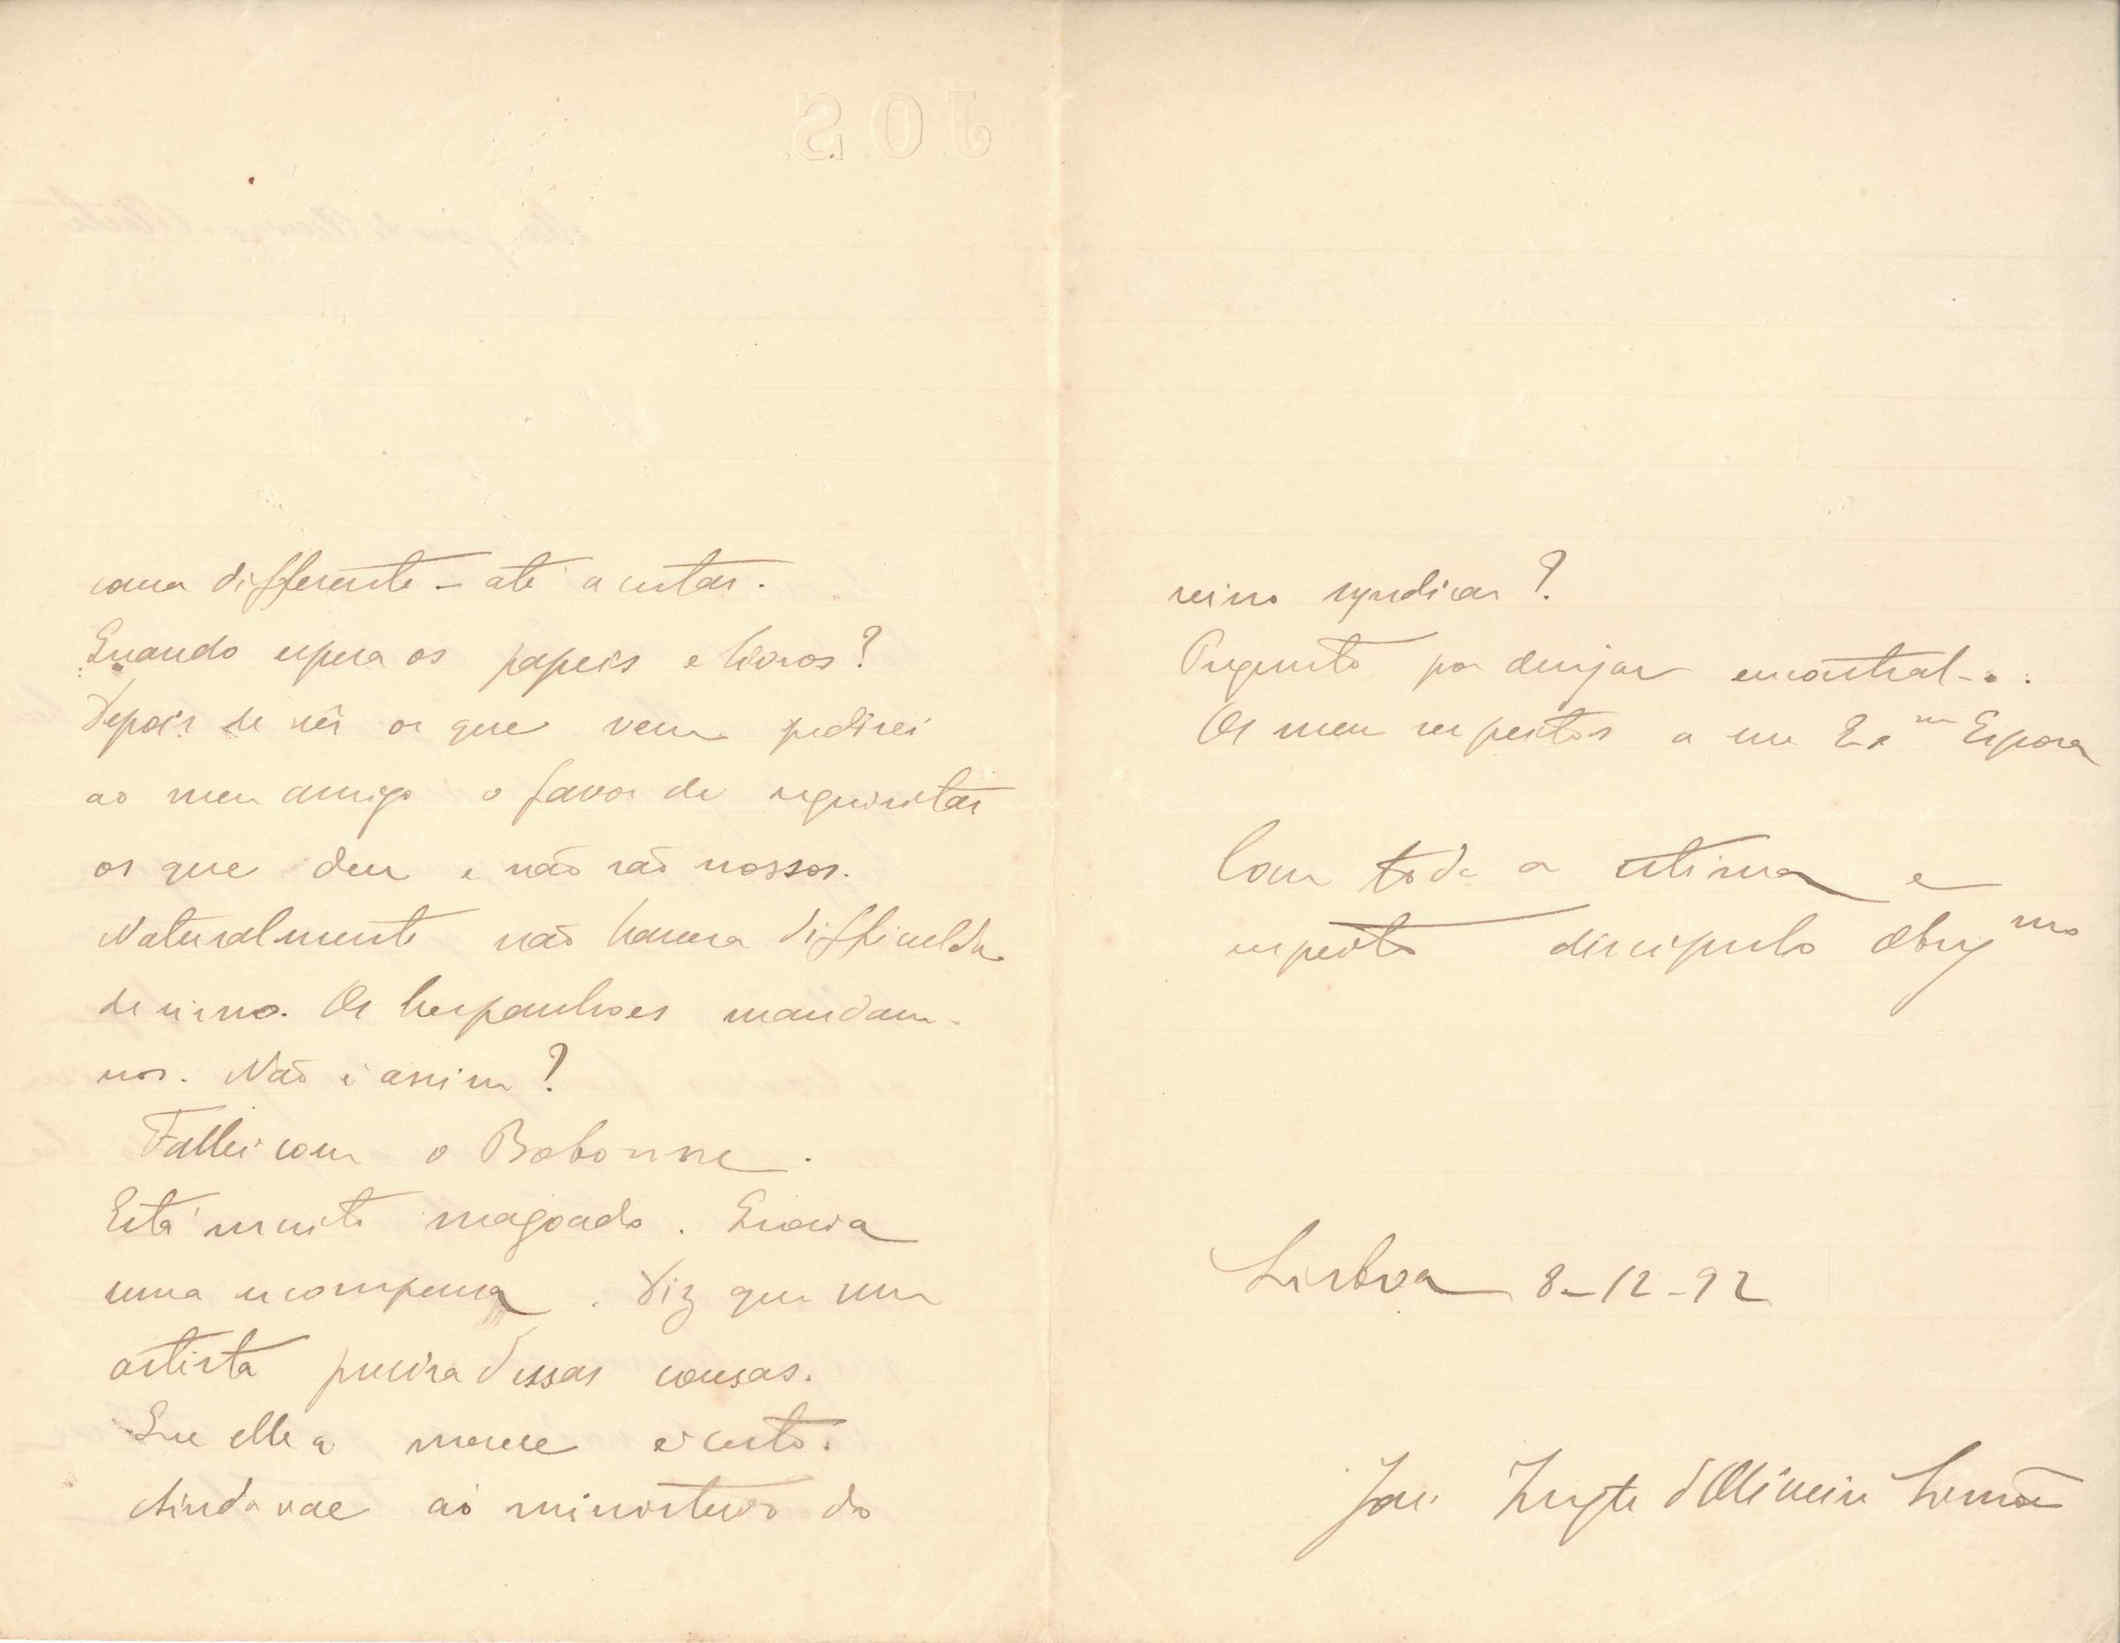 J.O.S.
cousa differente – até a contar.
Quando espera os papeis e livros?
Depois de vêr os que vem pedirei
ao meu amigo o favor de requisitar
os que deu e não são nossos.
Naturalmente não havera difficulda
de nisso. Os hespanhoes mandam-
nos. Não é assim?
Fallei com o Babonne.
Está muito magoado. Queria
uma recompensa. Diz que um
artista precisa dessas cousas.
Que elle a merece é certo.
Ainda vae ao ministerio do
reino syndicar?
Pergunto por desejar encontral-o.
Os meus respeitos a sua Exma Esposa
Com toda a estima e
respeito discipulo obrgmo
Lisboa 8-12-92
José d'Oliveira